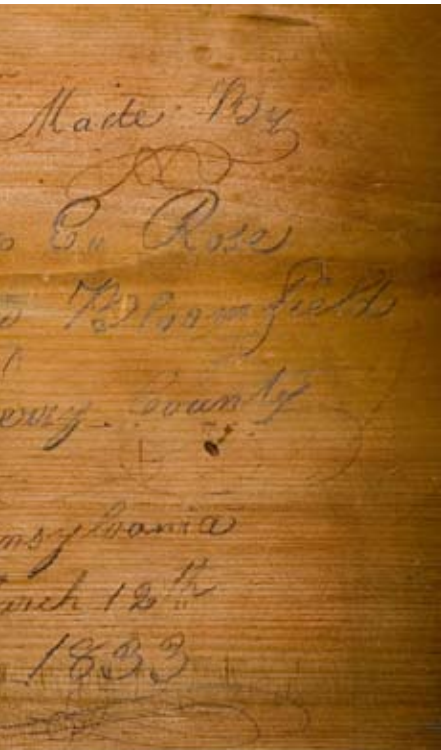 Made By
o E. Rose
Bloomfield
erry County
nsylvania
arch 12th
1833